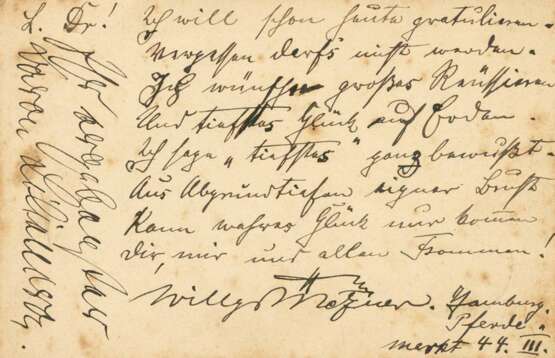 L. Dr.!
Ich will schon heute gratulieren.
Vergessen darfs nicht werden.
Ich wünsche großes Reüssieren
Und tiefstes Glück auf Erden.
Ich sage „tiefstes“ ganz bewußt.
Aus Abgrundtiefen eigner Brust
Kann wahres Glück nur kommen
Dir, mir und allen Frommen!
Willy
Hamburg.
Pferde-
markt 44. III.
Ihr ergebenster
Baron